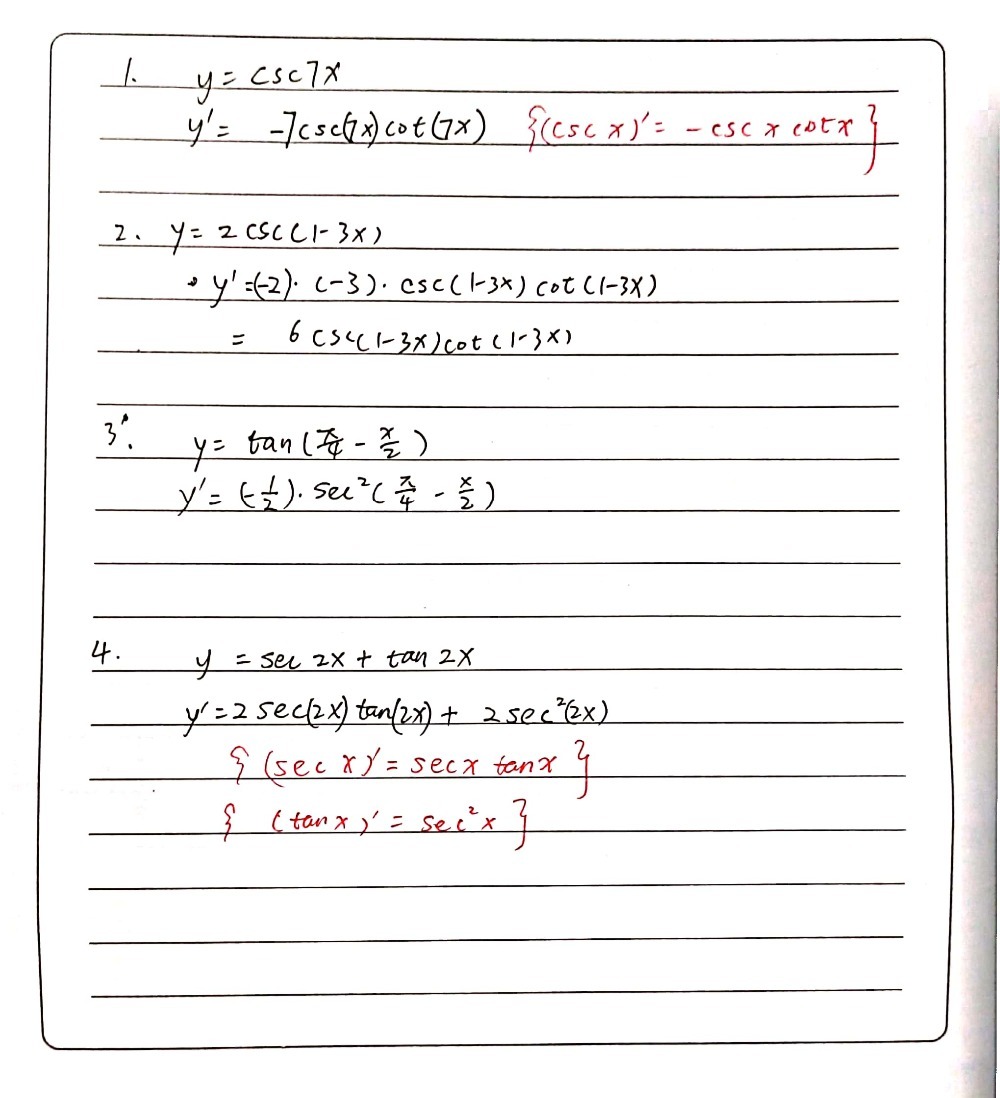 1. y = csc7x
y' = -7csc(7x)cot(7x) {(csc x)' = - csc x cotx}
2. y = 2 csc(1-3x)
• y' = (-2)·(-3)·csc(1-3x)cot(1-3x)
= 6 csc(1-3x)cot(1-3x)
3. y = tan(π/4 - x/2)
y' = (-1/2)·sec²(π/4 - x/2)
4. y = sec 2x + tan 2x
y' = 2 sec(2x) tan(2x) + 2 sec²(2x)
{ (sec x)' = secx tanx }
{ (tanx)' = sec²x }